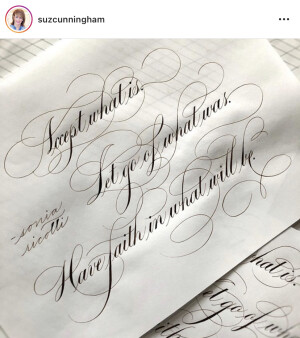 suzcunningham
Accept what is.
Let go of what was.
Have faith in what will be.
~sonia
ricotti
hat is.
t go of w